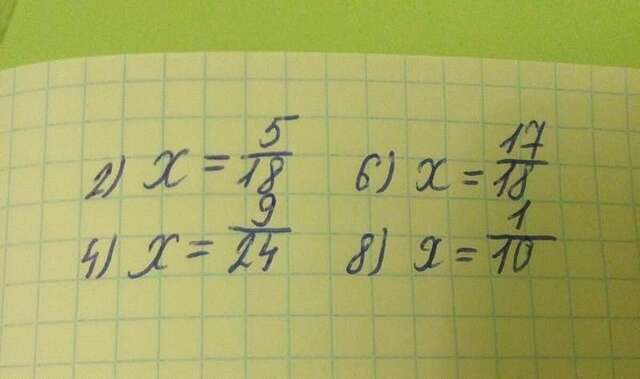 2) x = 5/18 6) x = 17/18
4) x = 9/24 8) x = 1/10